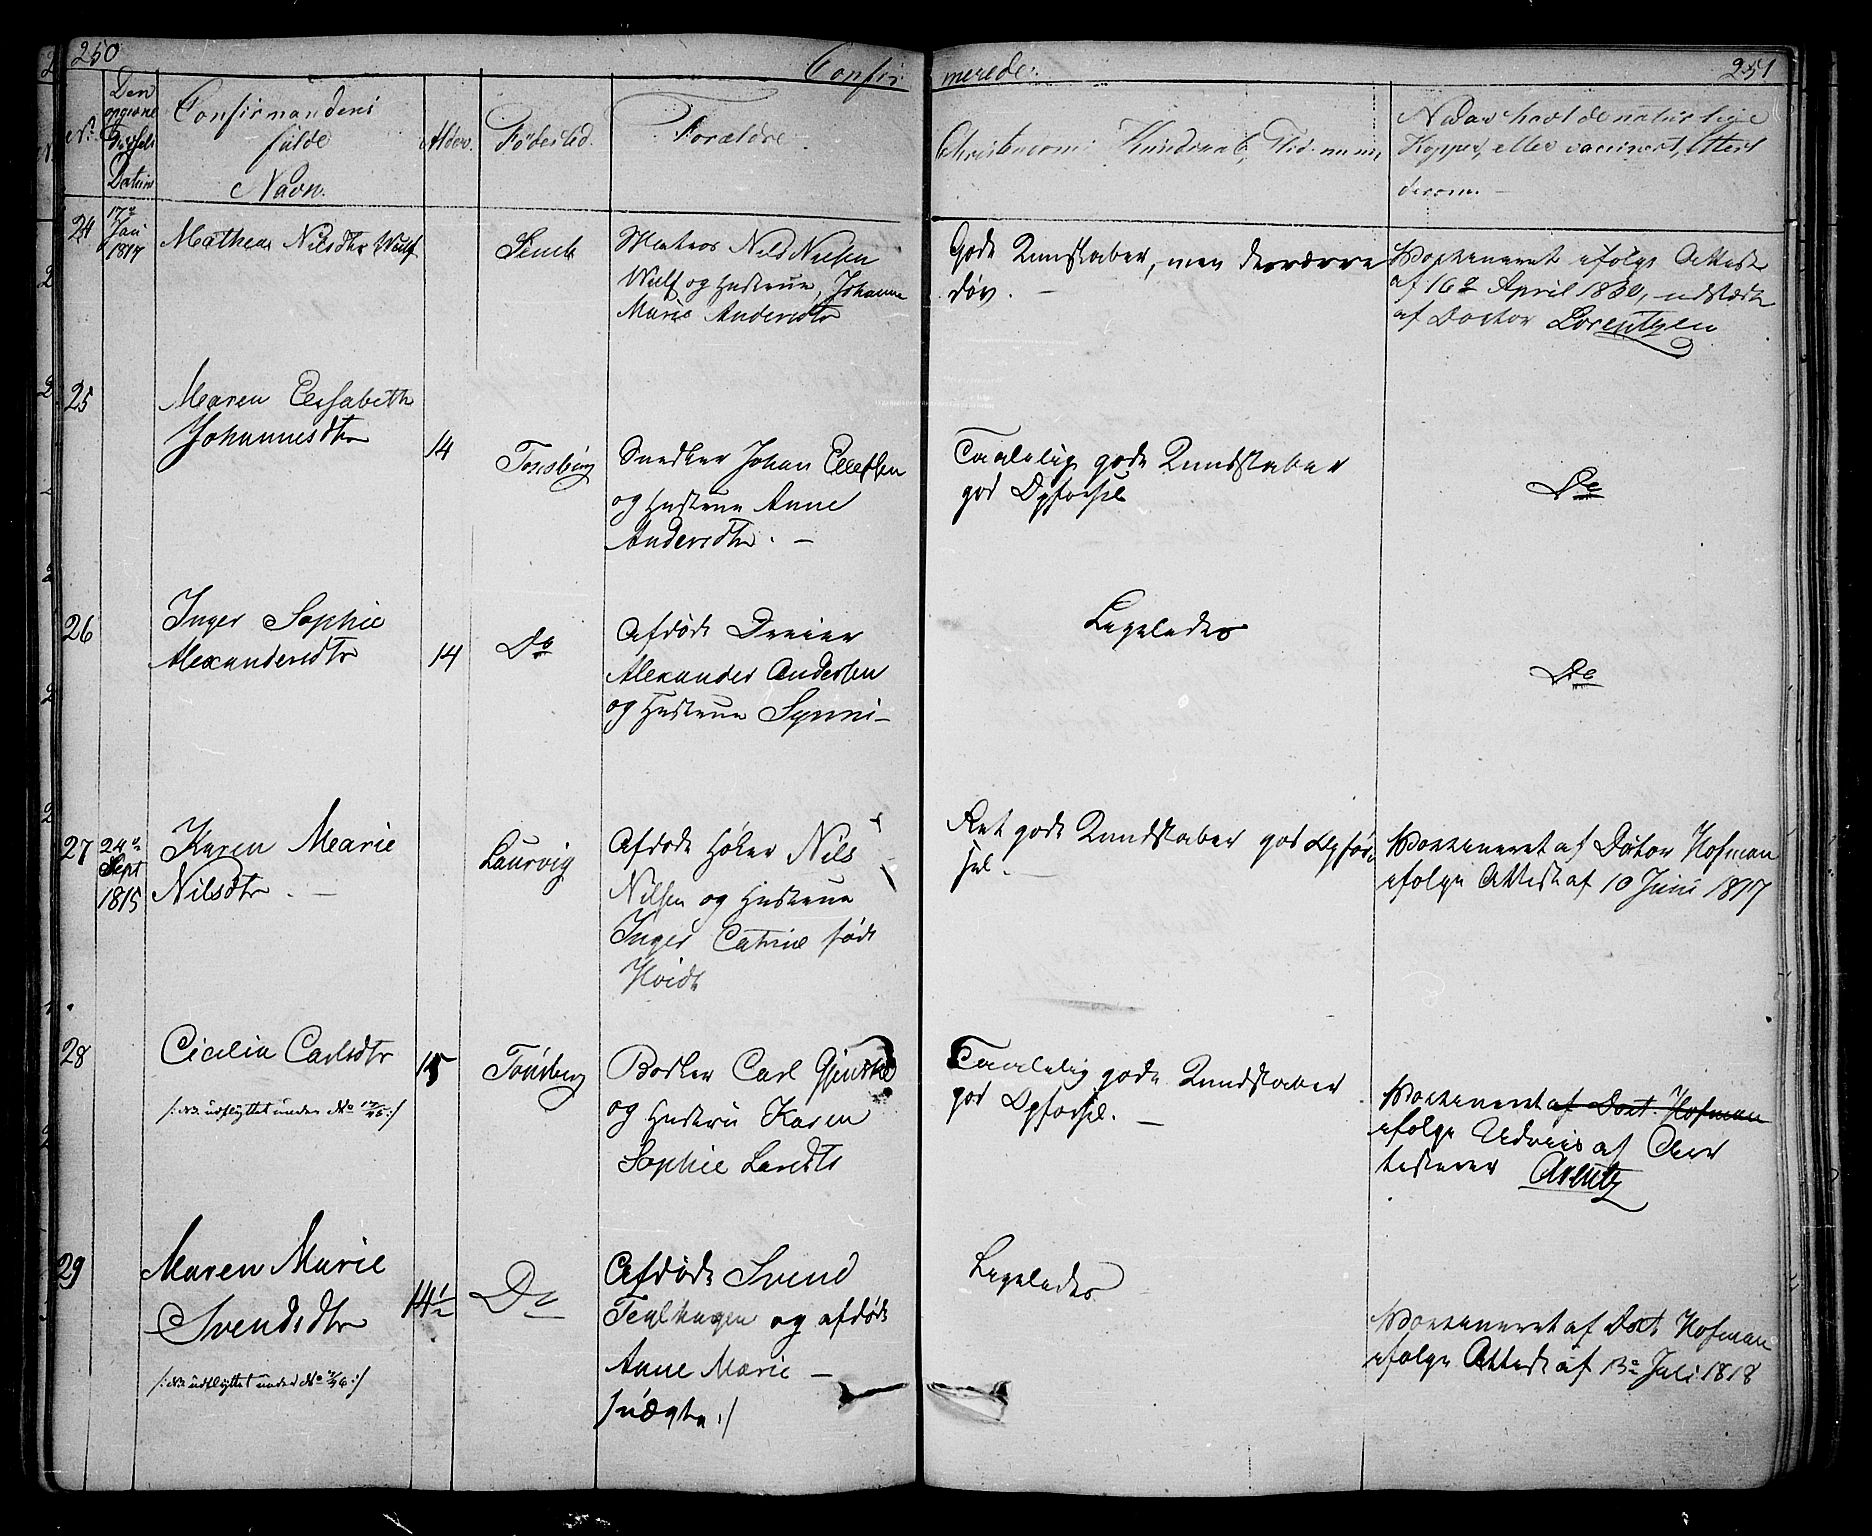 250
Confir
merede.
251
No
Den
opgivne
Fødsels
Datum
Confirmandens
fulde
Navn.
Alder.
Fødested.
Forældre.
Christendoms Kundskab, Flid
Naar havt de naturlige
Kopper, eller vaccineret, attest
derom.
24
17de
Jan
1817
Mathea Nilsdtr Wulf
Semb
Matros Nils Nielsen
Wulf og Hustrue, Johanne
Marie Andersdtr
Gode Kundskaber, men desværre
døv. —
Vaccineret ifølge Attest
af 16de April 1830, udstædt
af Doctor Lorentzen
25
Maren Elisabeth
Johannesdtr
14
Tonsberg
Snedker Johan Ellefsen
og Hustrue Anne
Andersdtr. —
Taalelig gode Kundskaber
god Opførsel
Do
26
Inger Sophie
Alexandersdtr
14
Do
Afdøde Dreier
Alexander Andersen
og Hustrue Synni —
Ligeledes
Do
27
24de
Sept
1815
Karen Marie
Nilsdtr. —
Laurvig
Afdøde Høker Nils
Nilsen og Hustrue
Inger Catrine født
Hvidt
Ret gode Kundskaber god Opfør
sel. —
Vaccineret af Doctor Hofman
ifølge Attest af 10 Juni 1817
28
Cicilia Carlsdtr
/: NB udflyttet under No :/
15
Tønsberg
Bødker Carl
og Hustru Karen
Sophie Landts
Taalelig gode Kundskaber
god Opførsel. —
Vaccineret af Doct. Hofman
ifølge Udviis af
Arentz
29
Maren Marie
Svendsdtr
/: NB udflyttet under No :/
14½
Do
Afdøde Svend
og afdøde
Anne Marie —
/:uægte:/
Ligeledes
Vaccineret af Doct. Hofman
ifølge Attest af 13de Juli 1818